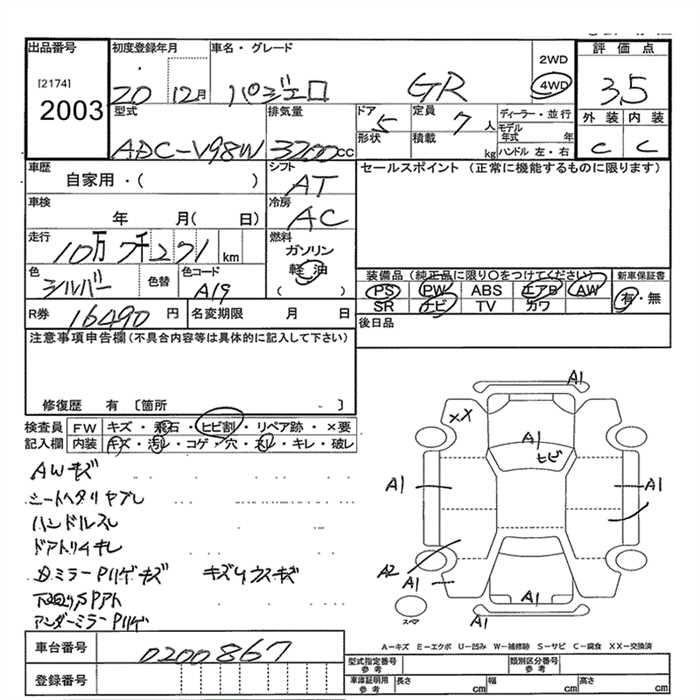 出品番号 初度登録年月 車名・グレード 評価点
[2174] 2003
20 12月 パジェロ GR 2WD 4WD 3.5
型式 排気量 ドア 定員 ディーラー・並行 外装 内装
ABC-V98W 3200cc 5 7人 モデル年式 年 C C
形状 積載 kg ハンドル 左・右
車歴 シフト セールスポイント (正常に機能するものに限ります)
自家用・( ) AT
車検 冷房
年 月( 日) AC
走行 燃料
10万7千271km ガソリン
軽油
色 色替 色コード ( ) 装備品(純正品に限り○をつけてください) 新車保証書
シルバー A19 PS PW ABS エアB AW 有・無
SR ナビ TV カワ
R券 16490円 名変期限 月 日 後日品
注意事項申告欄(不具合内容等は具体的に記入して下さい)
修復歴 有 [箇所 ]
検査員 FW キズ・飛石・ヒビ割・リペア跡・×要
記入欄 内装 キズ・汚レ・コゲ・穴・スレ・キレ・破レ
AWキズ
シートヘタリ ヤブレ
ハンドルスレ
ドアトリムキレ
ミラーPリゲキズ キズ ウスキズ
下廻りSPアト
アンダーミラーPリゲ
A1
XX
A1
ヒビ
A1 A1
A2
A1 A1
スペア
A1
A-キズ E-エクボ U-凹み W-補修跡 S-サビ C-腐食 XX-交換済
車台番号 0200867 型式指定番号 参考 類別区分番号 参考
登録番号 車庫証明用 参考 長さ cm 幅 cm 高さ cm